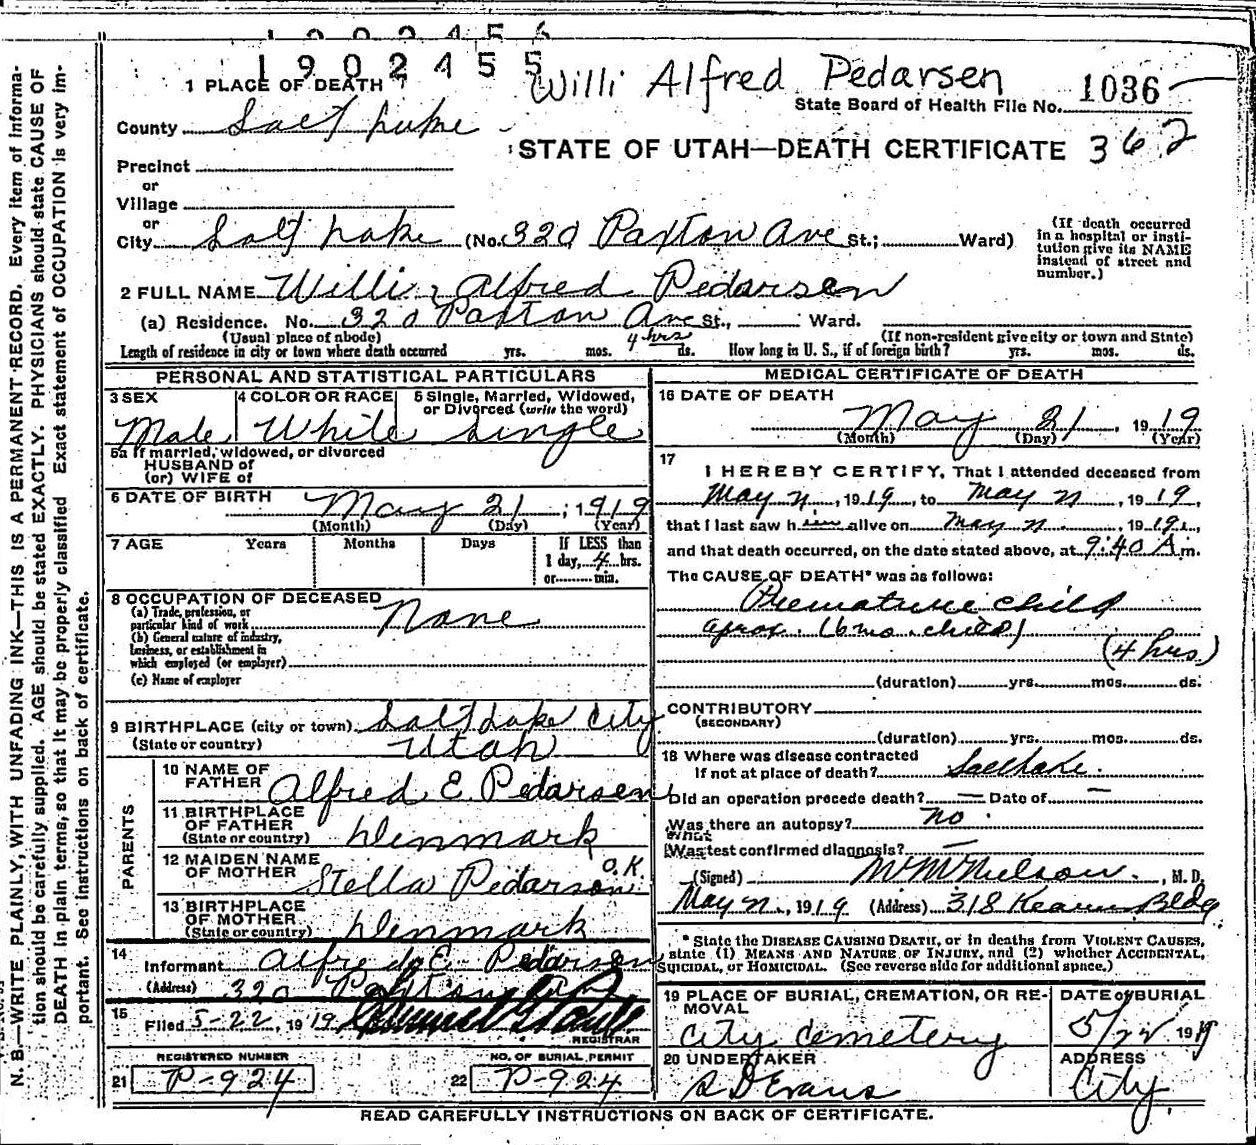 1902456
1902455
Willi Alfred Pedarsen
1 PLACE OF DEATH
State Board of Health File No. 1036
County Salt Lake
STATE OF UTAH—DEATH CERTIFICATE 362
Precinct
or
Village
or
City Salt Lake (No. 320 Paxton Ave St.; Ward)
(If death occurred in a hospital or insti-
tution give its NAME
instead of street and
number.)
2 FULL NAME Willi Alfred Pedarsen
(a) Residence. No. 320 Paxton Ave St., Ward.
(Usual place of abode) (If non-resident give city or town and State)
Length of residence in city or town where death occurred yrs. mos. 4 hrs ds. How long in U. S., if of foreign birth? yrs. mos. ds.
PERSONAL AND STATISTICAL PARTICULARS
3 SEX 4 COLOR OR RACE 5 Single, Married, Widowed,
or Divorced (write the word)
Male White Single
5a If married, widowed, or divorced
HUSBAND of
(or) WIFE of
6 DATE OF BIRTH May 21, 1919
(Month) (Day) (Year)
7 AGE Years Months Days If LESS than
1 day, 4 hrs.
or min.
8 OCCUPATION OF DECEASED
(a) Trade, profession, or
particular kind of work None
(b) General nature of industry,
business, or establishment in
which employed (or employer)
(c) Name of employer
9 BIRTHPLACE (city or town) Salt Lake City
(State or country) Utah
PARENTS
10 NAME OF
FATHER Alfred E. Pedarsen
11 BIRTHPLACE
OF FATHER
(State or country) Denmark
12 MAIDEN NAME
OF MOTHER Stella Pedarson O.K.
13 BIRTHPLACE
OF MOTHER
(State or country) Denmark
14
Informant Alfred E Pedarsen
(Address) 320 Paxton Ave
15
Filed 5-22, 1919
REGISTRAR
REGISTERED NUMBER NO. OF BURIAL PERMIT
21 P-924 22 P-924
MEDICAL CERTIFICATE OF DEATH
16 DATE OF DEATH
May 21, 1919
(Month) (Day) (Year)
17
I HEREBY CERTIFY, That I attended deceased from
May 21, 1919, to May 21, 1919,
that I last saw him alive on May 21, 1919,
and that death occurred, on the date stated above, at 9:40 A m.
The CAUSE OF DEATH* was as follows:
Premature child
aprox. (6 mo. child)
(4 hrs)
(duration) yrs. mos. ds.
CONTRIBUTORY
(SECONDARY)
(duration) yrs. mos. ds.
18 Where was disease contracted
If not at place of death? Salt Lake.
Did an operation precede death? — Date of —
Was there an autopsy? No.
What
Was test confirmed diagnosis? —
(Signed) M M Nielson, M. D.
May 21, 1919 (Address) 318 Kearns Bldg
* State the DISEASE CAUSING DEATH, or in deaths from VIOLENT CAUSES,
state (1) MEANS AND NATURE OF INJURY, and (2) whether ACCIDENTAL,
SUICIDAL, or HOMICIDAL. (See reverse side for additional space.)
19 PLACE OF BURIAL, CREMATION, OR RE-
MOVAL DATE of BURIAL
City Cemetery 5/22 1919
20 UNDERTAKER ADDRESS
S D Evans City
READ CAREFULLY INSTRUCTIONS ON BACK OF CERTIFICATE.
N. B.—WRITE PLAINLY, WITH UNFADING INK—THIS IS A PERMANENT RECORD. Every item of informa-
tion should be carefully supplied. AGE should be stated EXACTLY. PHYSICIANS should state CAUSE OF
DEATH in plain terms, so that it may be properly classified Exact statement of OCCUPATION is very im-
portant. See instructions on back of certificate.